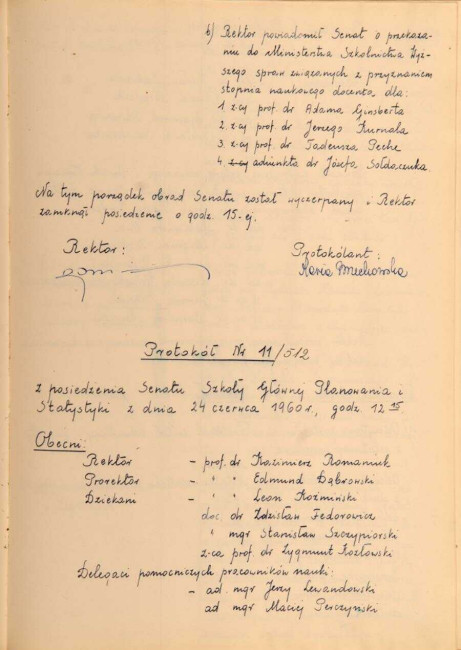 b) Rektor powiadomił Senat o przekaza-
niu do Ministerstwa Szkolnictwa Wyż-
szego spraw związanych z przyznaniem
stopnia naukowego docenta dla:
1. z-cy prof. dr Adama Ginsberta
2. z-cy prof. dr Jerzego Kurnala
3. z-cy prof. dr Tadeusza Peche
4. z-cy adiunkta dr Józefa Sołdaczuka
Na tym porządek obrad Senatu został wyczerpany i Rektor
zamknął posiedzenie o godz. 15-ej.
Rektor:
Protokólant:
Maria
Protokół Nr 11/512
z posiedzenia Senatu Szkoły Głównej Planowania i
Statystyki z dnia 24 czerwca 1960 r., godz. 12 15
Obecni:
Rektor - prof. dr Kazimierz Romaniuk
Prorektor - " " Edmund Dąbrowski
Dziekani - " " Leon Koźmiński
doc. dr Zdzisław Fedorowicz
" mgr Stanisław Szczypiorski
z-ca prof. dr Zygmunt Kozłowski
Delegaci pomocniczych pracowników nauki:
- ad. mgr Jerzy Lewandowski
ad mgr Maciej Perczyński